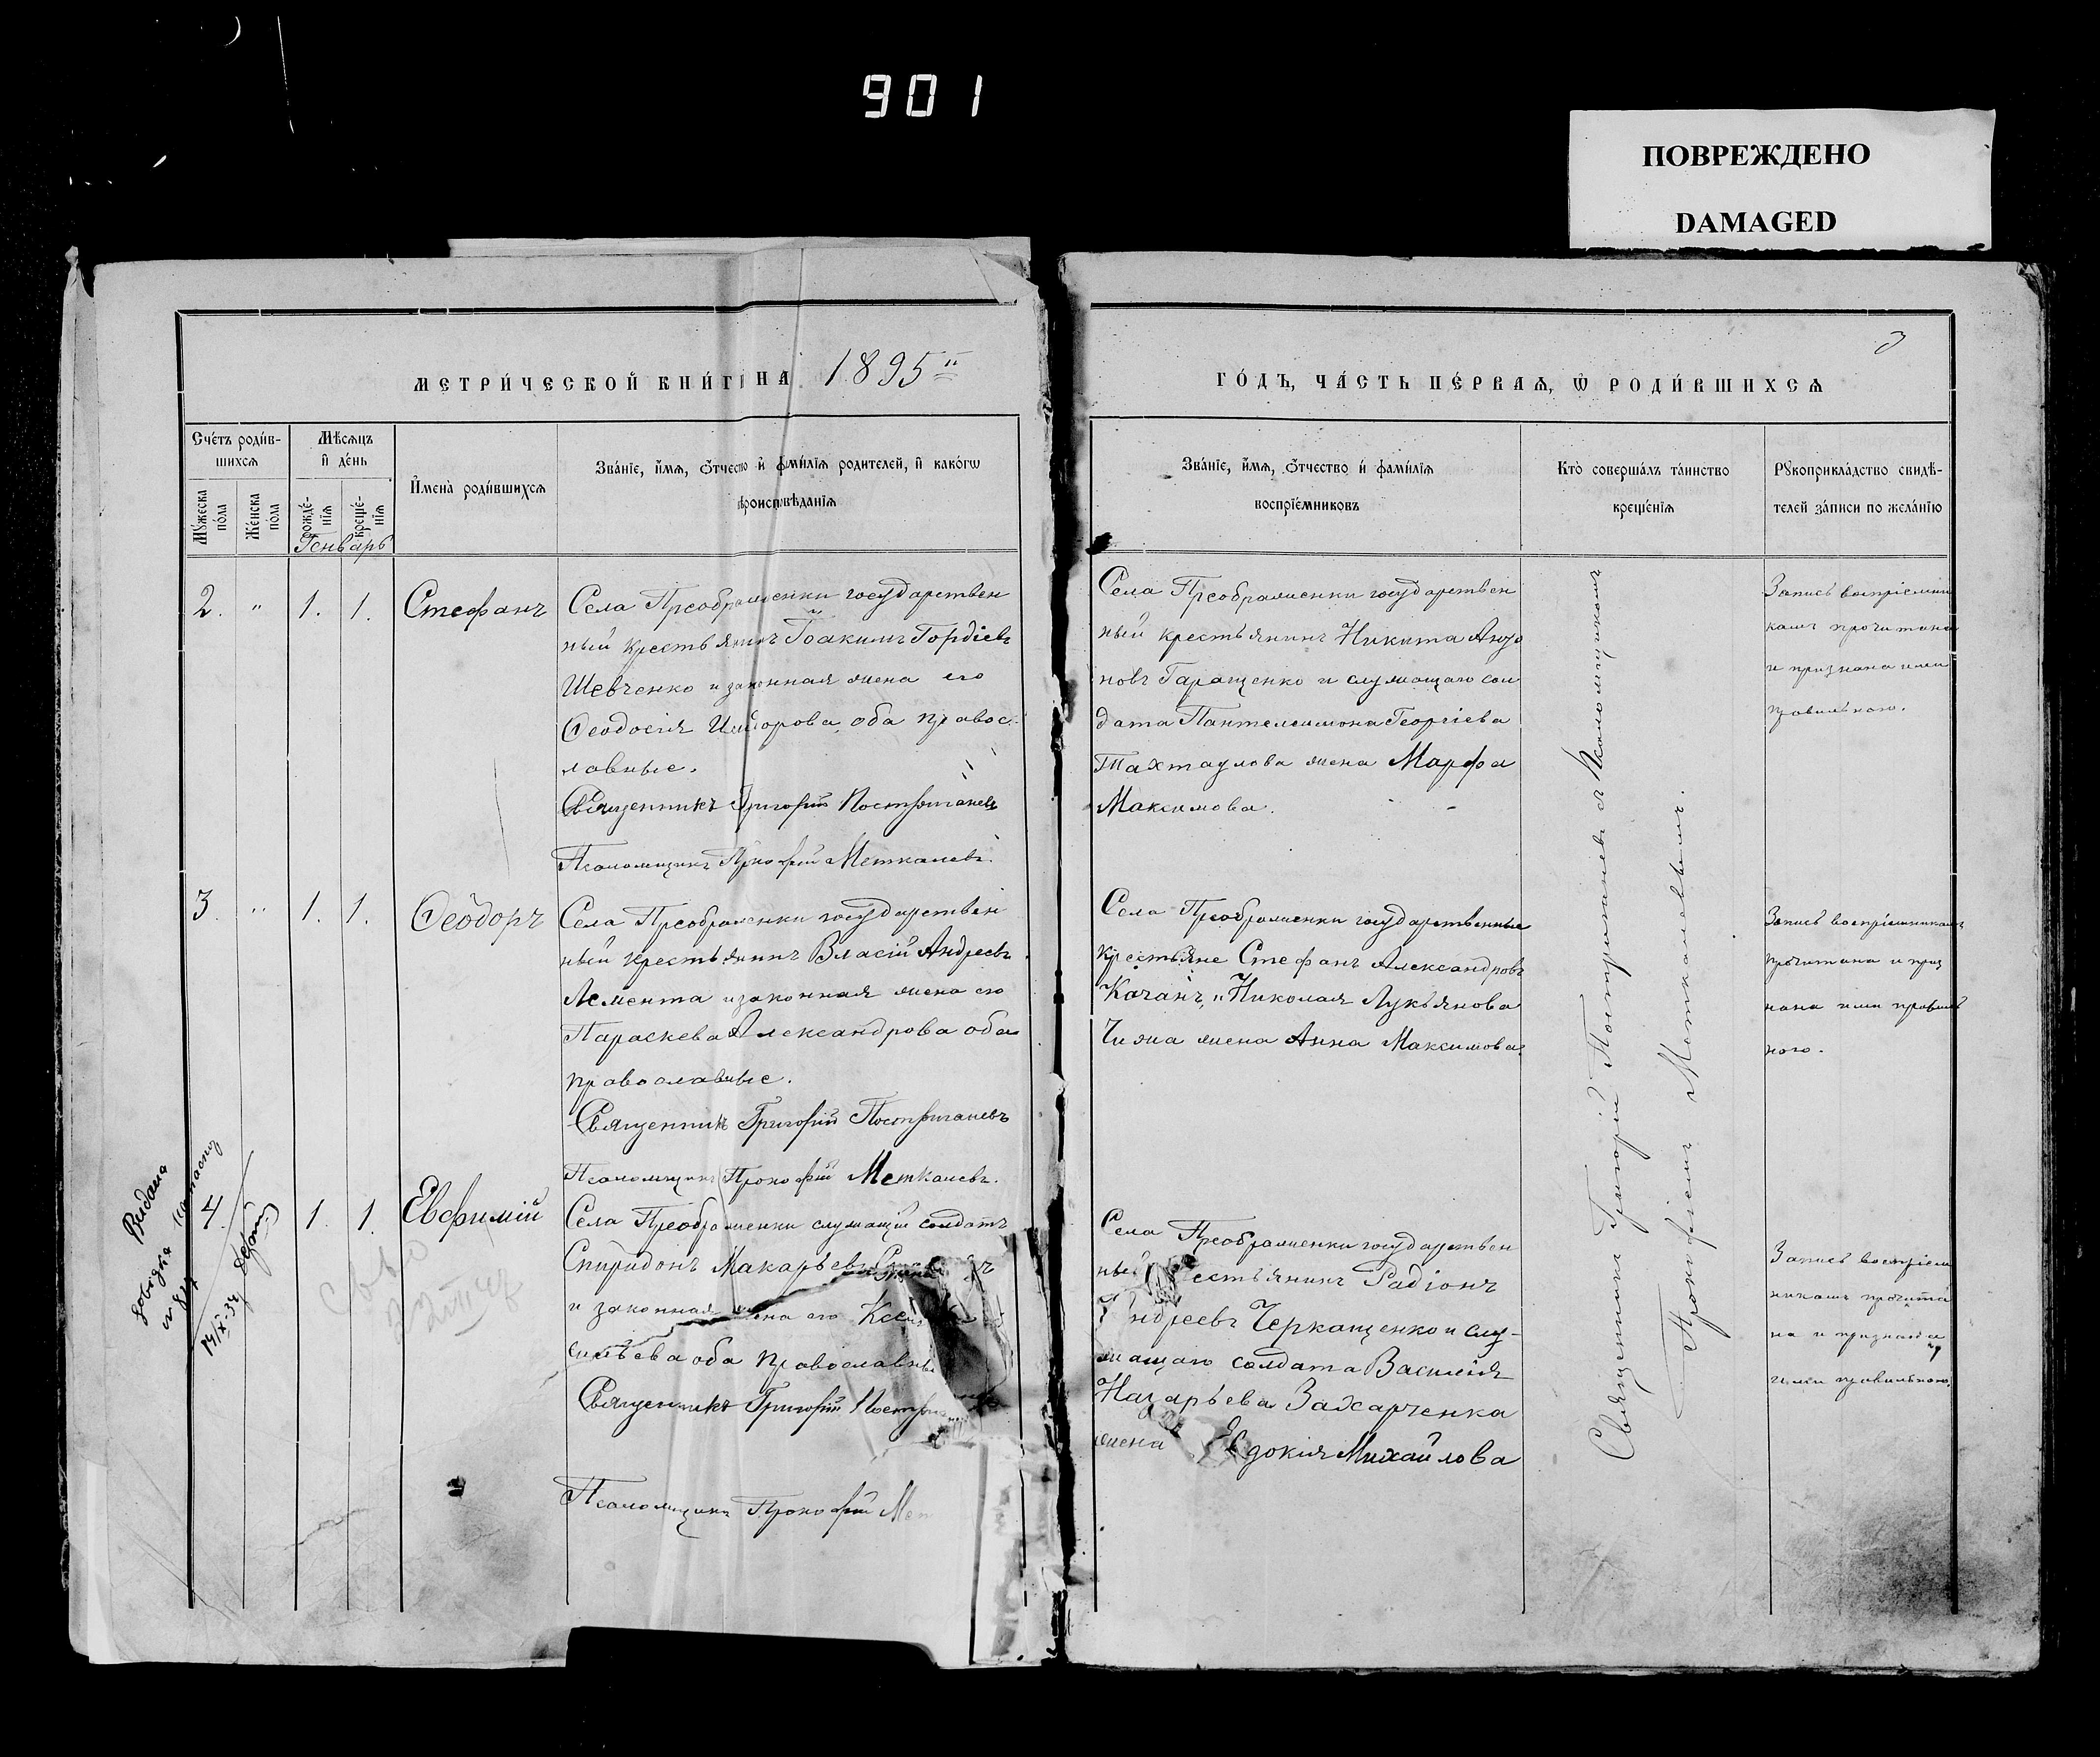 901
ПОВРЕЖДЕНО
DAMAGED
МЕТРИ́ЧЕСКОЙ КНИ́ГИ НА 1895й
ГО́ДЪ, ЧА́СТЬ ПЕ́РВАЯ, Ѿ РОДИ́ВШИХСЯ
3
Сче́тъ роди́в-
шихсѧ
Мꙋ́жеска по́ла
Же́нска по́ла
Мѣ́сѧцъ
и҆ де́нь
рожде́-
нїѧ
креще́-
нїѧ
Генварь
И҆мена̀ роди́вшихсѧ
Зва́нїе, и҆́мѧ, ѻ҆́тчество и҆ фами́лїѧ родителей, и҆ како́гѡ
вѣроисповѣ́данїѧ
Зва́нїе, и҆́мѧ, ѻ҆́тчество и҆ фами́лїѧ
воспрїе́мниковъ
Кто̀ соверша́лъ та́инство
креще́нїѧ
Рꙋкоприкла́дство свидѣ́-
телей за́писи по жела́нїю
2. " 1. 1. Стефанъ
Села Преображенки государствен
ный крестьянинъ Іоакимъ Гордіевъ
Шевченко и законная жена его
Ѳеодосія оба правос-
лавные.
Священникъ Григорій
Псаломщикъ Прокофій Меткалевъ.
Села Преображенки государствен
ный крестьянинъ Никита
новъ Гаращенко и служащаго сол
дата Пантелеимона Георгіева
Тахтаулова жена Марфа
Максимова.
Запись воспріемни
камъ прочитана
и признана ими
правильною.
3. " 1. 1. Ѳеодоръ
Села Преображенки государствен
ный крестьянинъ Власій Андреевъ
Лемента и законная жена его
Параскева Александрова оба
православные.
Священникъ Григорій
Псаломщикъ Прокофій Меткалевъ.
Села Преображенки государственные
крестьяне Стефанъ Александровъ
Качанъ, и Николая Лукьянова
Чижа жена Анна Максимова.
Запись воспріемникамъ
прочитана и приз
нана ими правиль
ною.
4. 1. 1. Евфимій
Села Преображенки служащій солдатъ
Спиридонъ Макарьевъ
и законная жена его
сильева оба православны
Священникъ Григорій
Псаломщикъ Прокофій Мет
Села Преображенки государствен
ный крестьянинъ Радіонъ
Андреевъ Черкащенко и слу-
жащаго солдата Василія
Назарьева Захарченка
жена Евдокія Михайлова
Запись воспріем
никамъ прочита
на и признана
ими правильною.
Священникъ Григорій съ Псаломщикомъ
Прокофіемъ Меткалевымъ.
Видана
довідка
14/IX-34